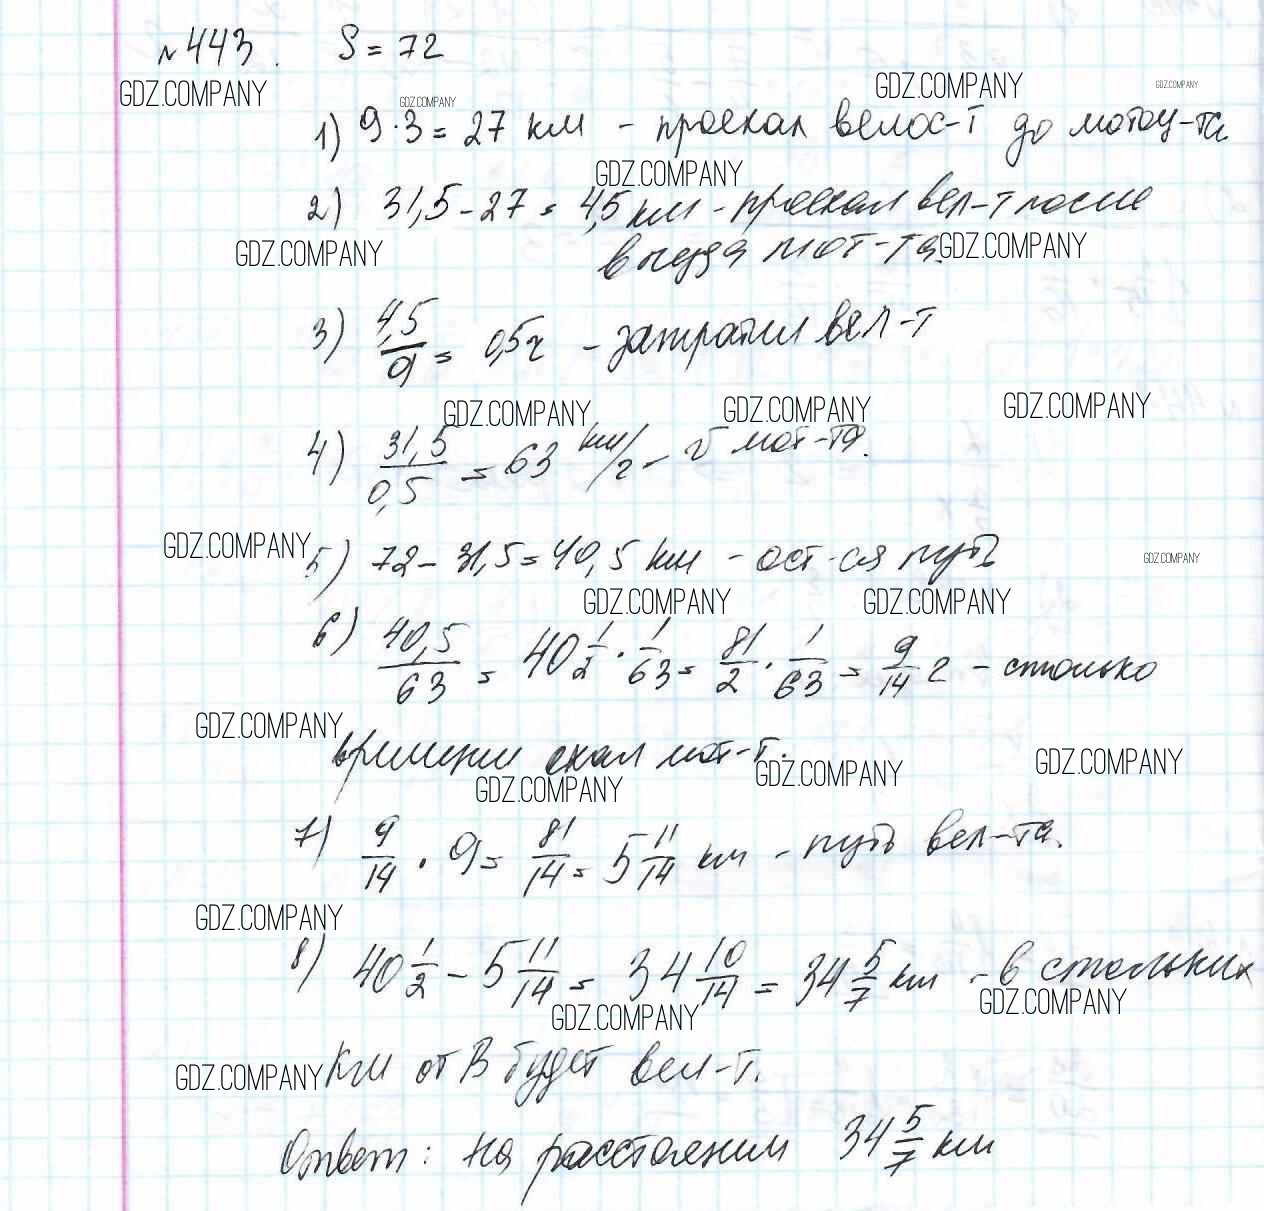 №443. S = 72
GDZ.COMPANY GDZ.COMPANY GDZ.COMPANY GDZ.COMPANY
1) 9·3 = 27 км – проехал велос-т до мотоц-та.
GDZ.COMPANY
2) 31,5 – 27 = 4,5 км – проехал вел-т после
GDZ.COMPANY выезда мот-та. GDZ.COMPANY
3) 4,5/9 = 0,5 ч – затратил вел-т
GDZ.COMPANY GDZ.COMPANY GDZ.COMPANY
4) 31,5/0,5 = 63 км/ч – v мот-та.
GDZ.COMPANY 5) 72 – 31,5 = 40,5 км – ост-ся путь GDZ.COMPANY
GDZ.COMPANY GDZ.COMPANY
6) 40,5/63 = 40 1/2 · 1/63 = 81/2 · 1/63 = 9/14 ч – столько
GDZ.COMPANY
времени ехал мот-т. GDZ.COMPANY GDZ.COMPANY
GDZ.COMPANY
7) 9/14 · 9 = 81/14 = 5 11/14 км – путь вел-та.
GDZ.COMPANY
8) 40 1/2 – 5 11/14 = 34 10/14 = 34 5/7 км – в стольких
GDZ.COMPANY GDZ.COMPANY
GDZ.COMPANY км от В будет вел-т.
Ответ: на расстоянии 34 5/7 км